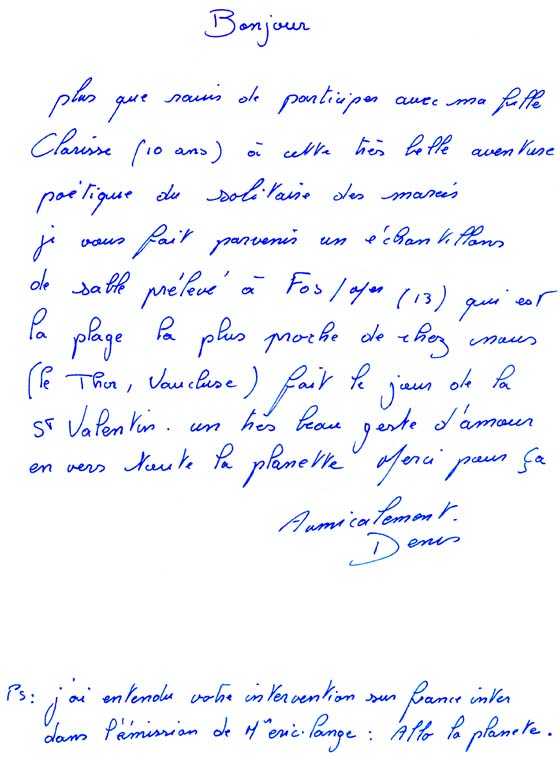 Bonjour
plus que ravis de participer avec ma fille
Clarisse (10 ans) à cette très belle aventure
poétique du solitaire des marées
je vous fait parvenir un échantillons
de sable prélevé à Fos/Mer (13) qui est
la plage la plus proche de chez nous
(le Thor, Vaucluse) fait le jour de la
ST Valentin. un très beau geste d'amour
en vers toute la planette Merci pour ça
Aumicalement.
Denis
Ps: j'ai entendu votre intervention sur france inter
dans l'émission de Mr eric.lange : Allo la planete.